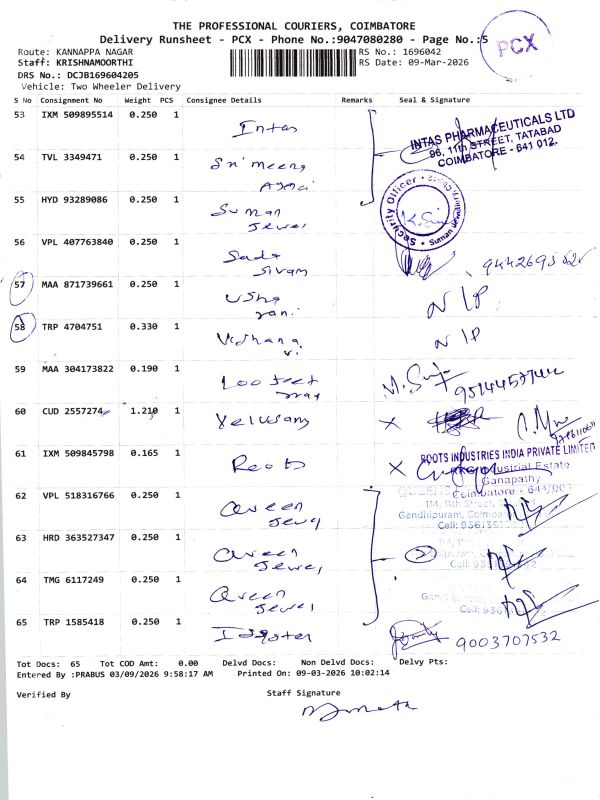 THE PROFESSIONAL COURIERS, COIMBATORE
Delivery Runsheet - PCX - Phone No.:9047080280 - Page No.:5
PCX
Route: KANNAPPA NAGAR
RS No.: 1696042
Staff: KRISHNAMOORTHI
RS Date: 09-Mar-2026
DRS No.: DCJB169604205
Vehicle: Two Wheeler Delivery
S No Consignment No Weight PCS Consignee Details Remarks Seal & Signature
53 IXM 509895514 0.250 1 Intas
INTAS PHARMACEUTICALS LTD
96, 11th STREET, TATABAD
COIMBATORE - 641 012.
54 TVL 3349471 0.250 1 Sri meena
55 HYD 93289086 0.250 1 Suman
Jewel
Security Officer
56 VPL 407763840 0.250 1 Sada
Sivam
57 MAA 871739661 0.250 1 Usha
rani
N/P
58 TRP 4704751 0.330 1
N/P
59 MAA 304173822 0.190 1 100 feet
60 CUD 2557274 1.210 1 Velusamy X
61 IXM 509845798 0.165 1 Roots X
ROOTS INDUSTRIES INDIA PRIVATE LIMITED
Industrial Estate
Ganapathy
Coimbatore - 641 006
62 VPL 518316766 0.250 1 Queen
Jewel
114, 11th Street,
Gandhipuram,
63 HRD 363527347 0.250 1 Queen
Jewel
64 TMG 6117249 0.250 1 Queen
Jewel
65 TRP 1585418 0.250 1
9003707532
Tot Docs: 65 Tot COD Amt: 0.00 Delvd Docs: Non Delvd Docs: Delvy Pts:
Entered By :PRABUS 03/09/2026 9:58:17 AM Printed On: 09-03-2026 10:02:14
Verified By Staff Signature